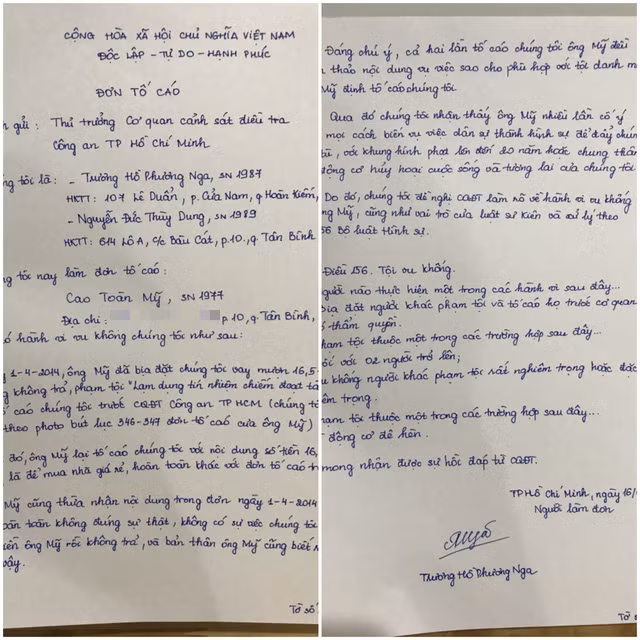 CỘNG HÒA XÃ HỘI CHỦ NGHĨA VIỆT NAM
ĐỘC LẬP - TỰ DO - HẠNH PHÚC
ĐƠN TỐ CÁO
gửi: Thủ trưởng Cơ quan cảnh sát điều tra
Công an TP Hồ Chí Minh
tôi là: - Trương Hồ Phương Nga, SN 1987
HKTT: 107 Lê Duẩn, p. Cửa Nam, q Hoàn Kiếm,
- Nguyễn Đức Thùy Dung, SN 1989
HKTT: 614 Lô A, C/c Bàu Cát, p.10, q. Tân Bình
tôi nay làm đơn tố cáo:
Cao Toàn Mỹ, SN 1977
Địa chỉ: p10, q. Tân Bình,
hành vi vu khống chúng tôi như sau:
1-4-2014, ông Mỹ đã bịa đặt chúng tôi vay mượn 16,5
không trả, phạm tội "Lạm dụng tín nhiệm chiếm đoạt
cáo chúng tôi trước CQĐT Công an TP HCM (chúng
theo photo bút lục 346-347 đơn tố cáo của ông Mỹ)
đó, ông Mỹ lại tố cáo chúng tôi với nội dung số tiền 16,
là để mua nhà giá rẻ, hoàn toàn khác với đơn tố cáo
Mỹ cũng thừa nhận nội dung trong đơn ngày 1-4-2014
toàn không đúng sự thật, không có sự việc chúng tôi
ông Mỹ rồi không trả, và bản thân ông Mỹ cũng biết
vậy.
Tờ số
Đáng chú ý, cả hai lần tố cáo chúng tôi ông Mỹ đều
thảo nội dung vụ việc sao cho phù hợp với tội danh
Mỹ định tố cáo chúng tôi.
Qua đó chúng tôi nhận thấy ông Mỹ nhiều lần cố ý
mọi cách biến vụ việc dân sự thành hình sự để đẩy chúng
tù, với khung hình phạt lên đến 20 năm hoặc chung thân
động cơ hủy hoại cuộc sống và tương lai của chúng tôi
Do đó, chúng tôi đề nghị CQĐT làm rõ về hành vi vu khống
Mỹ, cũng như vai trò của luật sư Kiên và xử lý theo
156 Bộ luật Hình sự.
Điều 156. Tội vu khống.
người nào thực hiện một trong các hành vi sau đây...
Bịa đặt người khác phạm tội và tố cáo họ trước cơ quan
thẩm quyền.
phạm tội thuộc một trong các trường hợp sau đây...
với 02 người trở lên;
khống người khác phạm tội rất nghiêm trọng hoặc
trọng.
phạm tội thuộc một trong các trường hợp sau đây...
động cơ đê hèn.
mong nhận được sự hồi đáp từ CQĐT.
TP Hồ Chí Minh, ngày 16/
Người làm đơn
Trương Hồ Phương Nga
Tờ